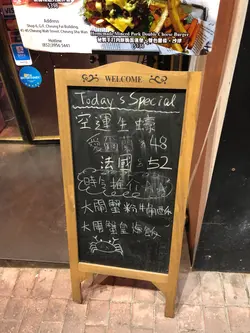 Address
Shop 6, G/F, Cheung Fai Building,
Cheung Wah Street, Cheung Sha Wan
Hotline
(852)3956 5441
Homemade Minced Pork Double Cheese Burger
WELCOME
Today's Special
空運生蠔
愛爾蘭 $48
法國 $52
時令推介
大閘蟹粉
大閘蟹皇撈飯